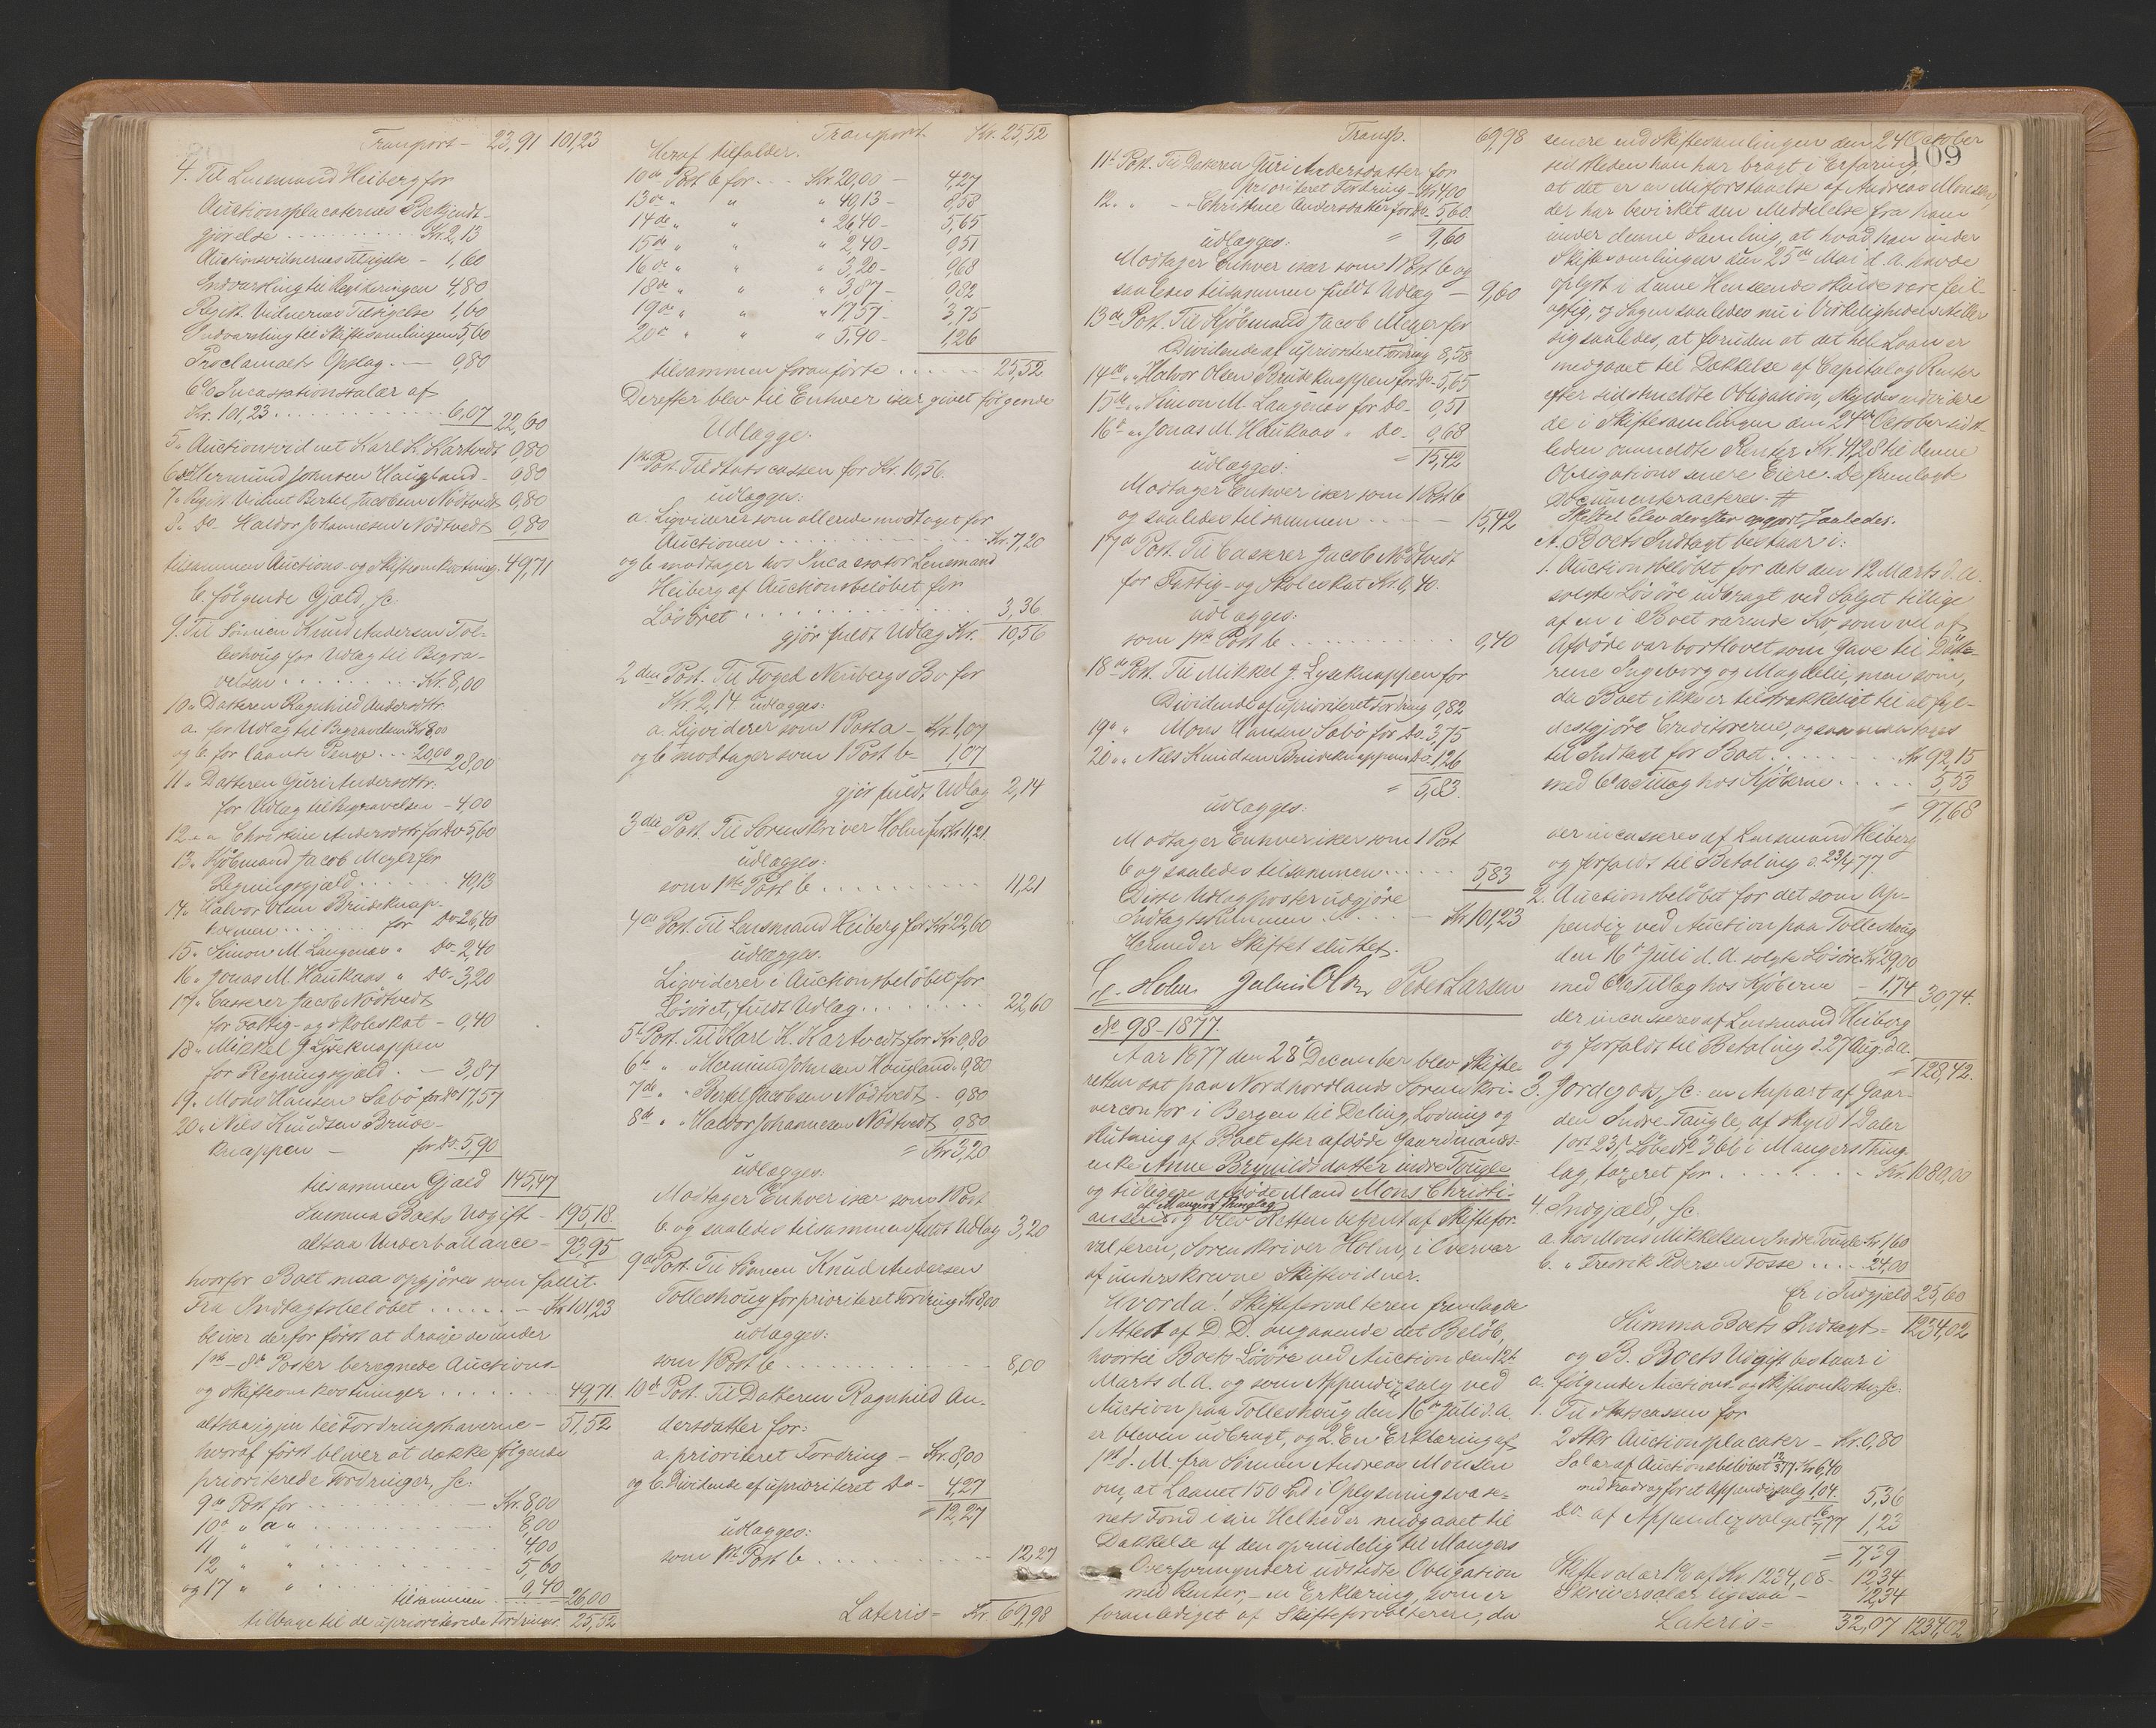 Transport - 23,91 101,23
4. Til Lensmand Heiberg for
Auctionsplacaternes Bekjendt-
gjørelse . . . . Kr. 2,13
Auctionsvidnernes Tilsigelse - 1,60
Indvarsling til Registeringen 4,80
Regist. Vidnernes Tilsigelse 1,60
Indvarsling til Skiftesamlingen 5,60
Proclamaets Opslag. — 0,80
6% Incassationssalær af
Kr. 101,23 . . . . 6,07 22,60
5. Auctionsvidnet Karl K. Hartvedt 0,80
6. do Hermund Johnsen Haugland - 0,80
7. Regist. Vidnet Bertel Jacobsen Nödtvedt 0,80
8. Do - Haldor Johannesen Nödtvedt 0,80
tilsammen Auctions- og Skifteomkostning. 49,71
b. følgende Gjæld, sc:
9. Til Sönnen Knud Andersen Tol-
leshoug for Udlæg til Begra-
velsen . . . . Kr. 8,00
10 „ Datteren Ragnhild Andersdttr.
a. for Udlæg til Begravelsen Kr 8,00
og b. for laante Penge . . . 20,00 28,00
11 „ Datteren Guri Andersdttr:
for Udlæg til Begravelsen - 4,00
12 „ „ Christine Andersdttr for Do 5,60
13 „ Kjöbmand Jacob Meyer for
Regningsgjæld . . . . 40,13
14 „ Halvor Olsen Brudeknap-
pen . . . . for Do 26,40
15 „ Simon M. Langenæs „ Do - 2,40
16 „ Jonas M. Haukaas „ Do - 3,20
17 „ Casserer Jacob Nödtvedt
for Fattig- og Skoleskat - 0,40
18 „ Mikkel J. Lyseknappen
for Regningsgjæld . — 3,87
19 „ Mons Hansen Sabö for Do 17,57
20 „ Nils Knudsen Brude-
knappen — for Do. 5,90
tilsammen Gjæld 145,47
Summa Boets Udgift - 195,18
altsaa Underballance - 93,95
hvorfor Boet maa opgjöres som fallit.
Fra Indtægtsbelöbet . . . . Kr 101,23
bliver derfor först at drage de under
1ste - 8de Poster beregnede Auctions-
og Skifteomkostninger . . . . 49,71.
altsaa igjen til Fordringshaverne - 51,52
hvoraf först bliver at dække fölgende
prioriterede Fordringer, sc:
9de Post for . . . . — Kr. 8,00
10de „ a „ . . . . 8,00
11 „ „ . . . . 4,00
12 „ „ . . . . 5,60
og 17 „ „ . . . . 0,40
tilsammen . . . . 26,00
tilbage til de uprioriterede Fordringer. 25,52
Transport Kr. 25,52
Heraf tilfalder.
10de Post b for . . . Kr. 20,00 — 4,27
13de „ „ „ 40,13 — 8,58
14de „ „ „ 26,40 — 5,65
15de „ „ „ 2,40 — 0,51
16de „ „ „ 3,20 — 0,68
18de „ „ „ 3,87 — 0,82
19de „ „ „ 17,57 — 3,75
20de „ „ „ 5,90 — 1,26
tilsammen foranförte . . . . 25,52
Derefter blev til Enhver især givet fölgende
Udlægge.
1ste Post. Til Statscassen for Kr. 10,56.
udlægges:
a. Liqviderer som allerede modtaget for
Auctionen . . . . Kr. 7,20
og b modtager hos Incassator Lensmand
Heiberg af Auctionsbelöbet for
Lösöret . . . . 3,36
gjör fuldt Udlæg Kr. 10,56
2den Post. Til Foged Neübergs Bo for
Kr. 2,14 udlægges:
a. Liqviderer som 1 Post a - Kr. 1,07
og b modtager som 1 Post b - 1,07
gjör fuldt Udlæg 2,14
3die Post. Til Sorenskriver Holm for Kr 11,21
udlægges:
som 1ste Post b . . . . 11,21
4de Post. Til Lensmand Heiberg for Kr 22,60
udlægges.
Liqviderer i Auctionsbelöbet for
Lösöret, fuldt Udlæg . . . . 22,60
5te Post. Til Karl K. Hartvedt for Kr 0,80
6te „ „ Hermund Johnsen Hougland. 0,80
7de „ „ Bertel Jacobsen Nödtvedt - 0,80
8de „ „ Haldor Johannesen Nödtvedt 0,80
= Kr 3,20
udlægges:
Modtager Enhver især som 1 Post
b. og saaledes tilsammen fuldt Udlæg 3,20
9de Post. Til Sönnen Knud Andersen
Tolleshoug for prioriteret Fordring Kr 8,00
udlægges:
som 1 Post b . . . . 8,00
10de Post. Til Datteren Ragnhild An-
dersdatter for:
a. prioriteret Fordring — Kr. 8,00
og b. Dividende af uprioriteret Do - 4,27
= 12,27
udlægges:
som 1ste Post b . . . . 12,27
Lateris = Kr 69,98
Transp. 69,98
11te Post. Til Datteren Guri Andersdatter for
prioriteret Fordring - Kr. 4,00
12. „ - „ Christine Andersdatter for Do - 5,60.
= 9,60
udlægges:
Modtager Enhver især som 1 Post b og
saaledes tilsammen fuldt Udlæg — 9,60
13de Post. Til Kjöbmand Jacob Meyer for
Dividende af uprioriteret Fordring 8,58
14de „ „ Halvor Olsen Brudeknappen for Do - 5,65
15de „ „ Simon M. Langenæs for Do - 0,51
16de „ „ Jonas M. Haukaas „ Do - 0,68
= 15,42
udlægges:
Modtager Enhver især som 1 Post b
og saaledes tilsammen . . . . — 15,42
17de Post. Til Casserer Jacob Nödtvedt
for Fattig- og Skoleskat Kr. 0,40.
udlægges:
som 1ste Post b . . . . 0,40
18de Post. Til Mikkel J. Lyseknappen for
Dividende af uprioriteret Fordring 0,82
19de „ Mons Hansen Sabö for Do. 3,75
20 „ „ Nils Knudsen Brudeknappen Do - 1,26
= 5,83.
udlægges:
Modtager Enhver især som 1 Post
b og saaledes tilsammen . . . . 5,83
Disse Udlægsposter udgjöre
Indtægtssummen . . . . — Kr. 101,23
Hermed er Skiftet sluttet.
Holm Julius Olsen Peder Larsen
No 98 - 1877.
Aar 1877 den 28de December blev Skifte-
retten sat paa Nordhordlands Sorenskri-
vercontor i Bergen til Deling, Lodning og
Slutning af Boet efter afdöde Gaardmands-
enke Anne Brynildsdatter indre Tougle
og tidligere afdöde Mand Mons Christi-
af Mangers Thinglag
ansen og blev Retten betjent af Skiftefor-
valteren, Sorenskriver Holm, i Overvær
af underskrevne Skiftevidner.
Hvorda! Skifteforvalteren fremlagde
1 Attest af D. D. angaaende det Belöb,
hvortil Boets Lösöre ved Auction den 12te
Marts d. A. og som Appendixsalg ved
Auction paa Tolleshoug den 16de Juli d. A.
er bleven udbragt, og 2. En Erklæring af
1ste d. M. fra Sönnen Andreas Monsen
om, at Laanet 150 Spd i Oplysningsvæse-
nets Fond i sin Helhed er medgaaet til
Dækkelse af den oprindelig til Mangers
Overformynderi udstedte Obligation
med Renter, - en Erklæring, som er
foranlediget af Skifteforvalteren, da
109
senere end Skiftesamlingen den 24 October
sidstleden han har bragt i Erfaring,
at det er en Misforstaaelse af Andreas Monsen,
der har bevirket den Meddelelse fra ham
under denne Samling, at hvad han under
Skiftesamlingen den 25de Mai d. A. havde
oplyst i denne Henseende skulde være feil-
agtig, og Sagen saaledes nu i Virkeligheden stiller
sig saaledes, at foruden at det hele Laan er
medgaaet til Dækkelse af Capital og Renter
efter sidstmeldte Obligation, skyldes endvidere
de i Skiftesamlingen den 24de October sidst-
leden anmeldte Renter Kr. 41,28 til denne
Obligations senere Eiere. De fremlagte
Documenter acteres. #
Skiftet blev derefter opgjort saaledes.
A. Boets Indtægt bestaar i:
1. Auctionsbelöbet for dets den 12 Marts d. A.
solgte Lösöre udbragt ved Salget tillige
af en i Boet værende Ko, som vel af
Afdöde var bortlovet som Gave til Döttre-
rene Ingeborg og Magdeli, men som,
da Boet ikke er tilstrækkeligt til at fyl-
destgjöre Creditorerne, ogsaa maa tages
til Indtægt for Boet . . . . Kr 92,15
med 6% Tillæg hos Kjöberne . . . . 5,53
= 97,68
der incasseres af Lensmand Heiberg
og forfaldt til Betaling d. 23/4 77.
2. Auctionsbelöbet for det som Ap-
pendix ved Auction paa Tolleshoug
den 16de Juli d. A. solgte Lösöre Kr 29,00
med 6% Tillæg hos Kjöberne — 1,74 30,74.
der incasseres af Lensmand Heiberg
og forfaldt til Betaling d. 27 Aug. d. A.
= 128,42.
3. Jordegods, sc: en Anpart af Gaar-
den Indre Tougle, af Skyld 1 Daler
1 ort 23 s, Löbe No 366 i Mangers Thing-
lag, taxeret for . . . . Kr. 1080,00
4. Indgjæld, sc.
a. hos Mons Mikkelsen Indre Tougle Kr. 1,60
b. „ Fredrik Pedersen Fosse . . . . 24,00
Er i Indgjæld 25,60
Summa Boets Indtægt = 1234,02
og B. Boets Udgift bestaar i
a. fölgende Auctions- og Skifteomkostn. sc.
1. Til Statscassen for
2 Stkr Auctionsplacater - Kr. 0,80
Salær af Auctionsbelöbet 12/3 77 Kr 6,40
med Fradrag for et Appendixsalg 1,04. 5,36
Do. af Appendixsalget 16/7 77 1,23
= 7,39
Skiftesalær 1% af Kr. 1234,08 - 12,34
Skriversalær ligesaa - 12,34
Lateris = 32,07 1234,02